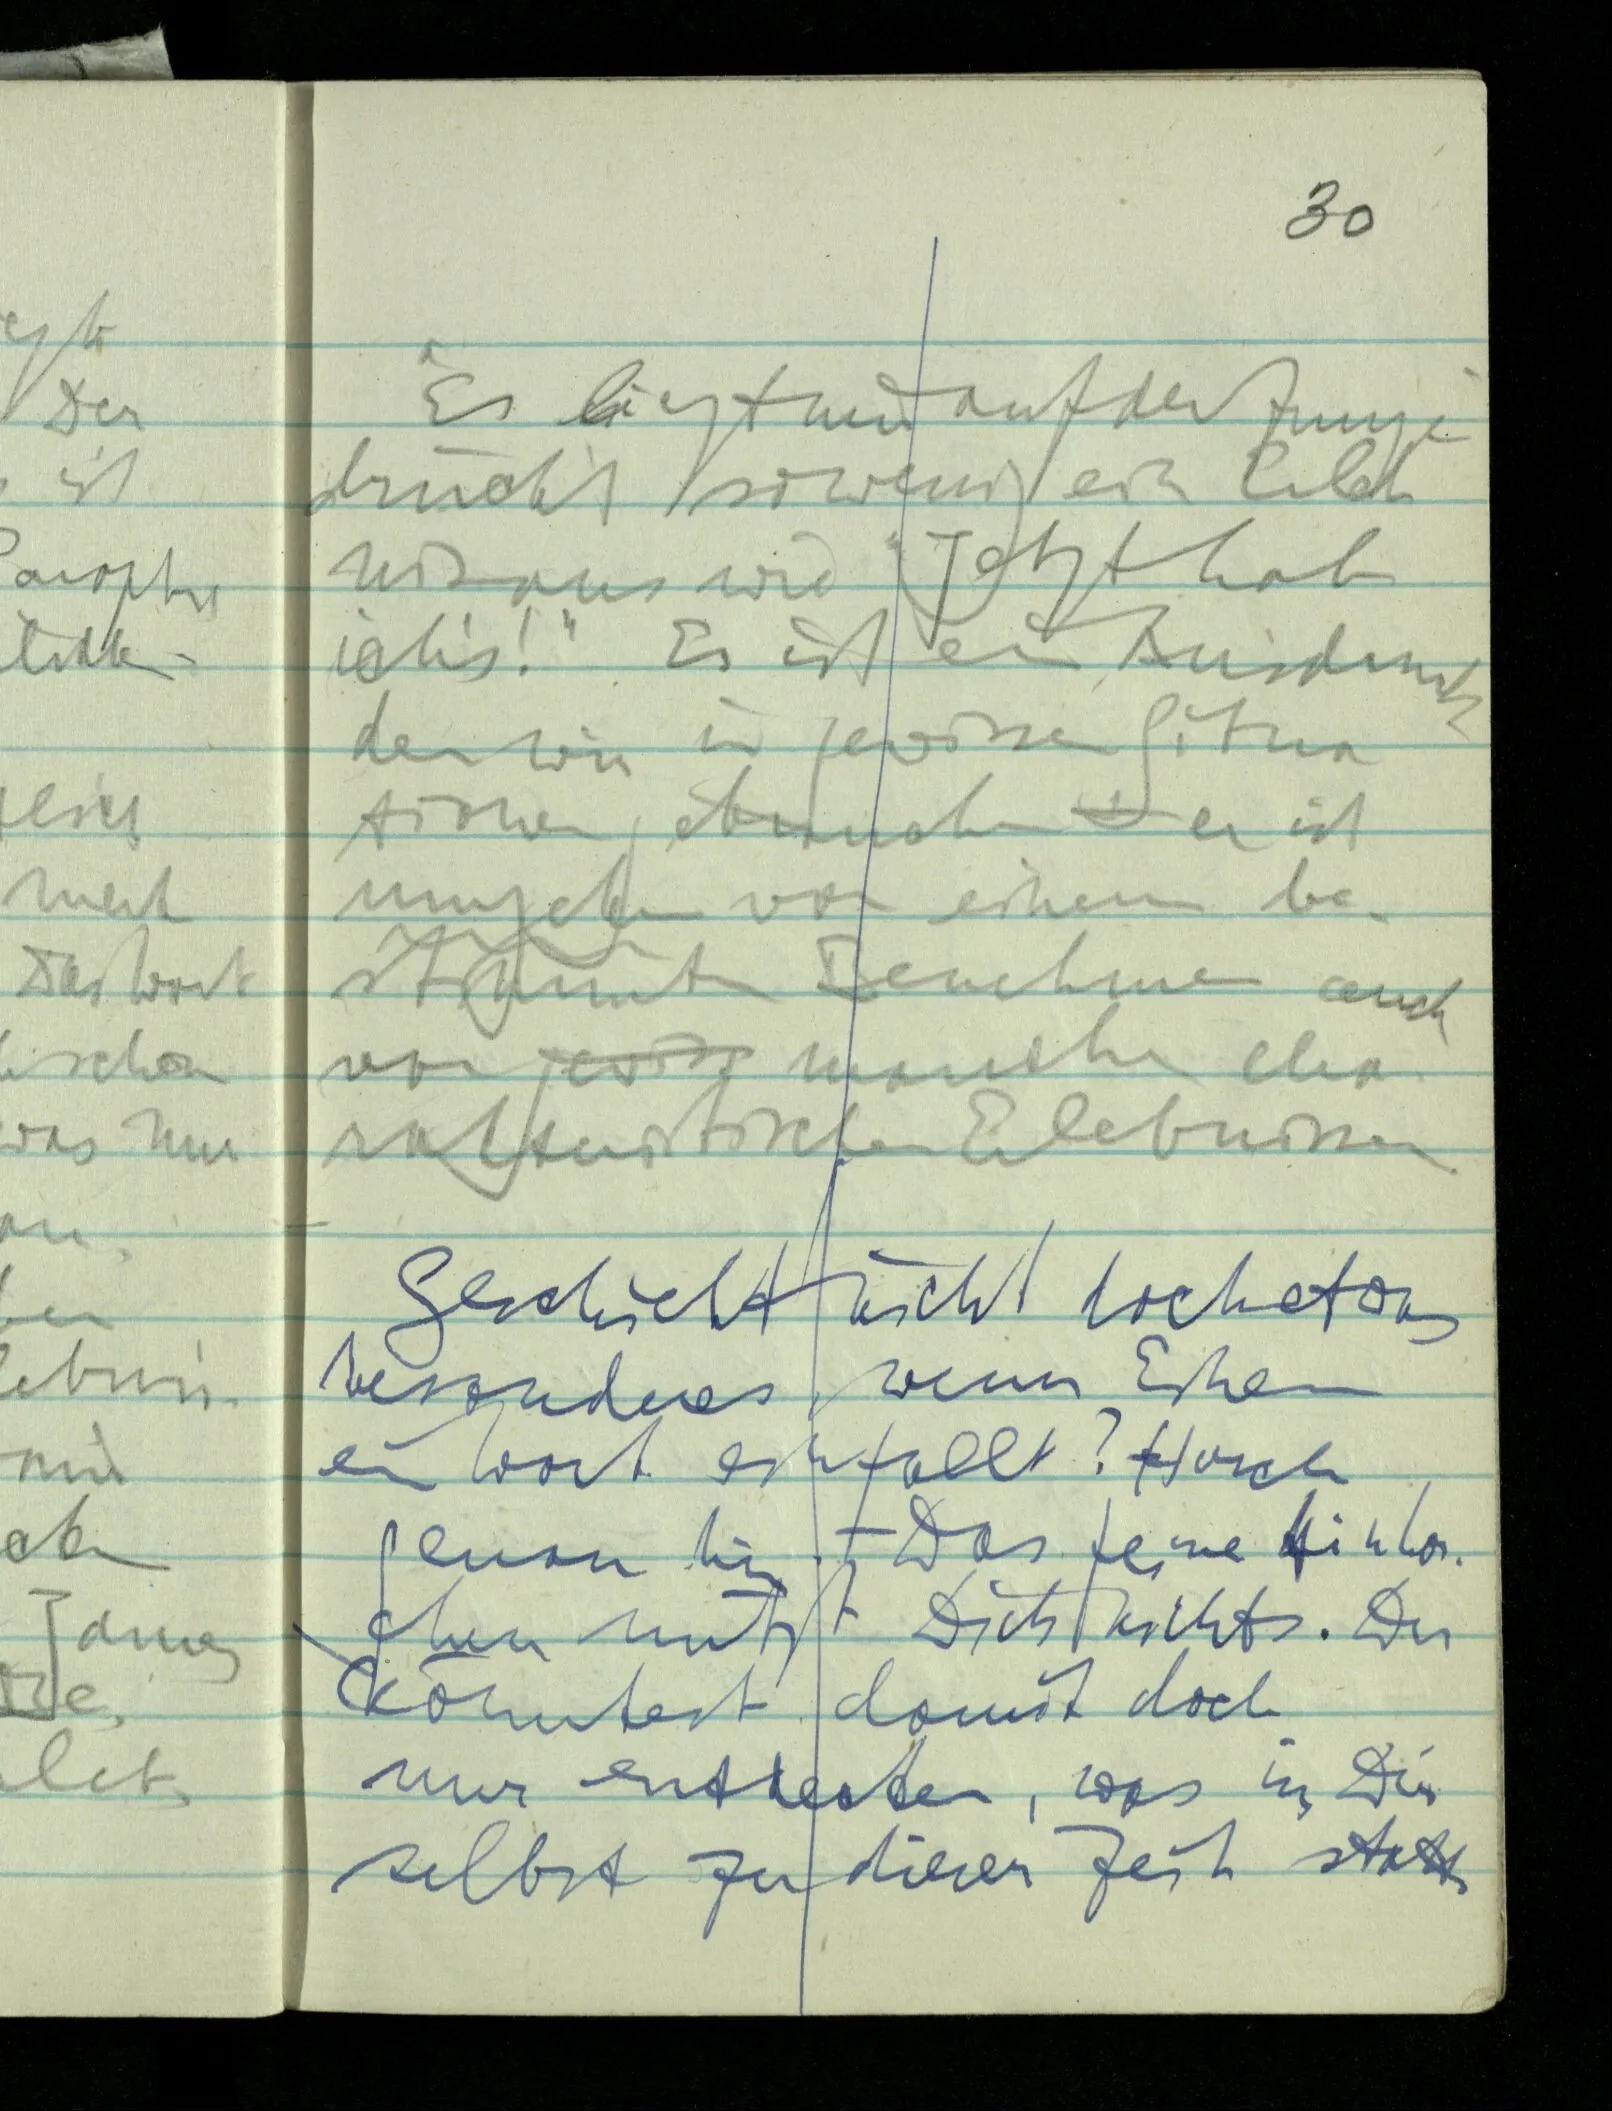 30
"Es liegt mir auf der Zunge
drückt sowenig ein Erleb
nis aus wie "Jetzt hab
ich's!" Es ist ein Ausdruck
den wir in gewissen Situa
tionen gebrauchen er ist
umgeben von einem be-
stimmten Benehmen auch
von gewiss manchen cha
rakteristischen Erlebnissen
Geschieht nicht doch etwas
besonderes, wenn Einem
ein Wort einfällt? Horch
genau hin. — Das feine Hinhor-
chen nützt Dich nichts. Du
könntest damit doch
nur entdecken, was in Dir
selbst zu dieser Zeit statt
Der
ist
meist
Das Wort
schon
was nur
James